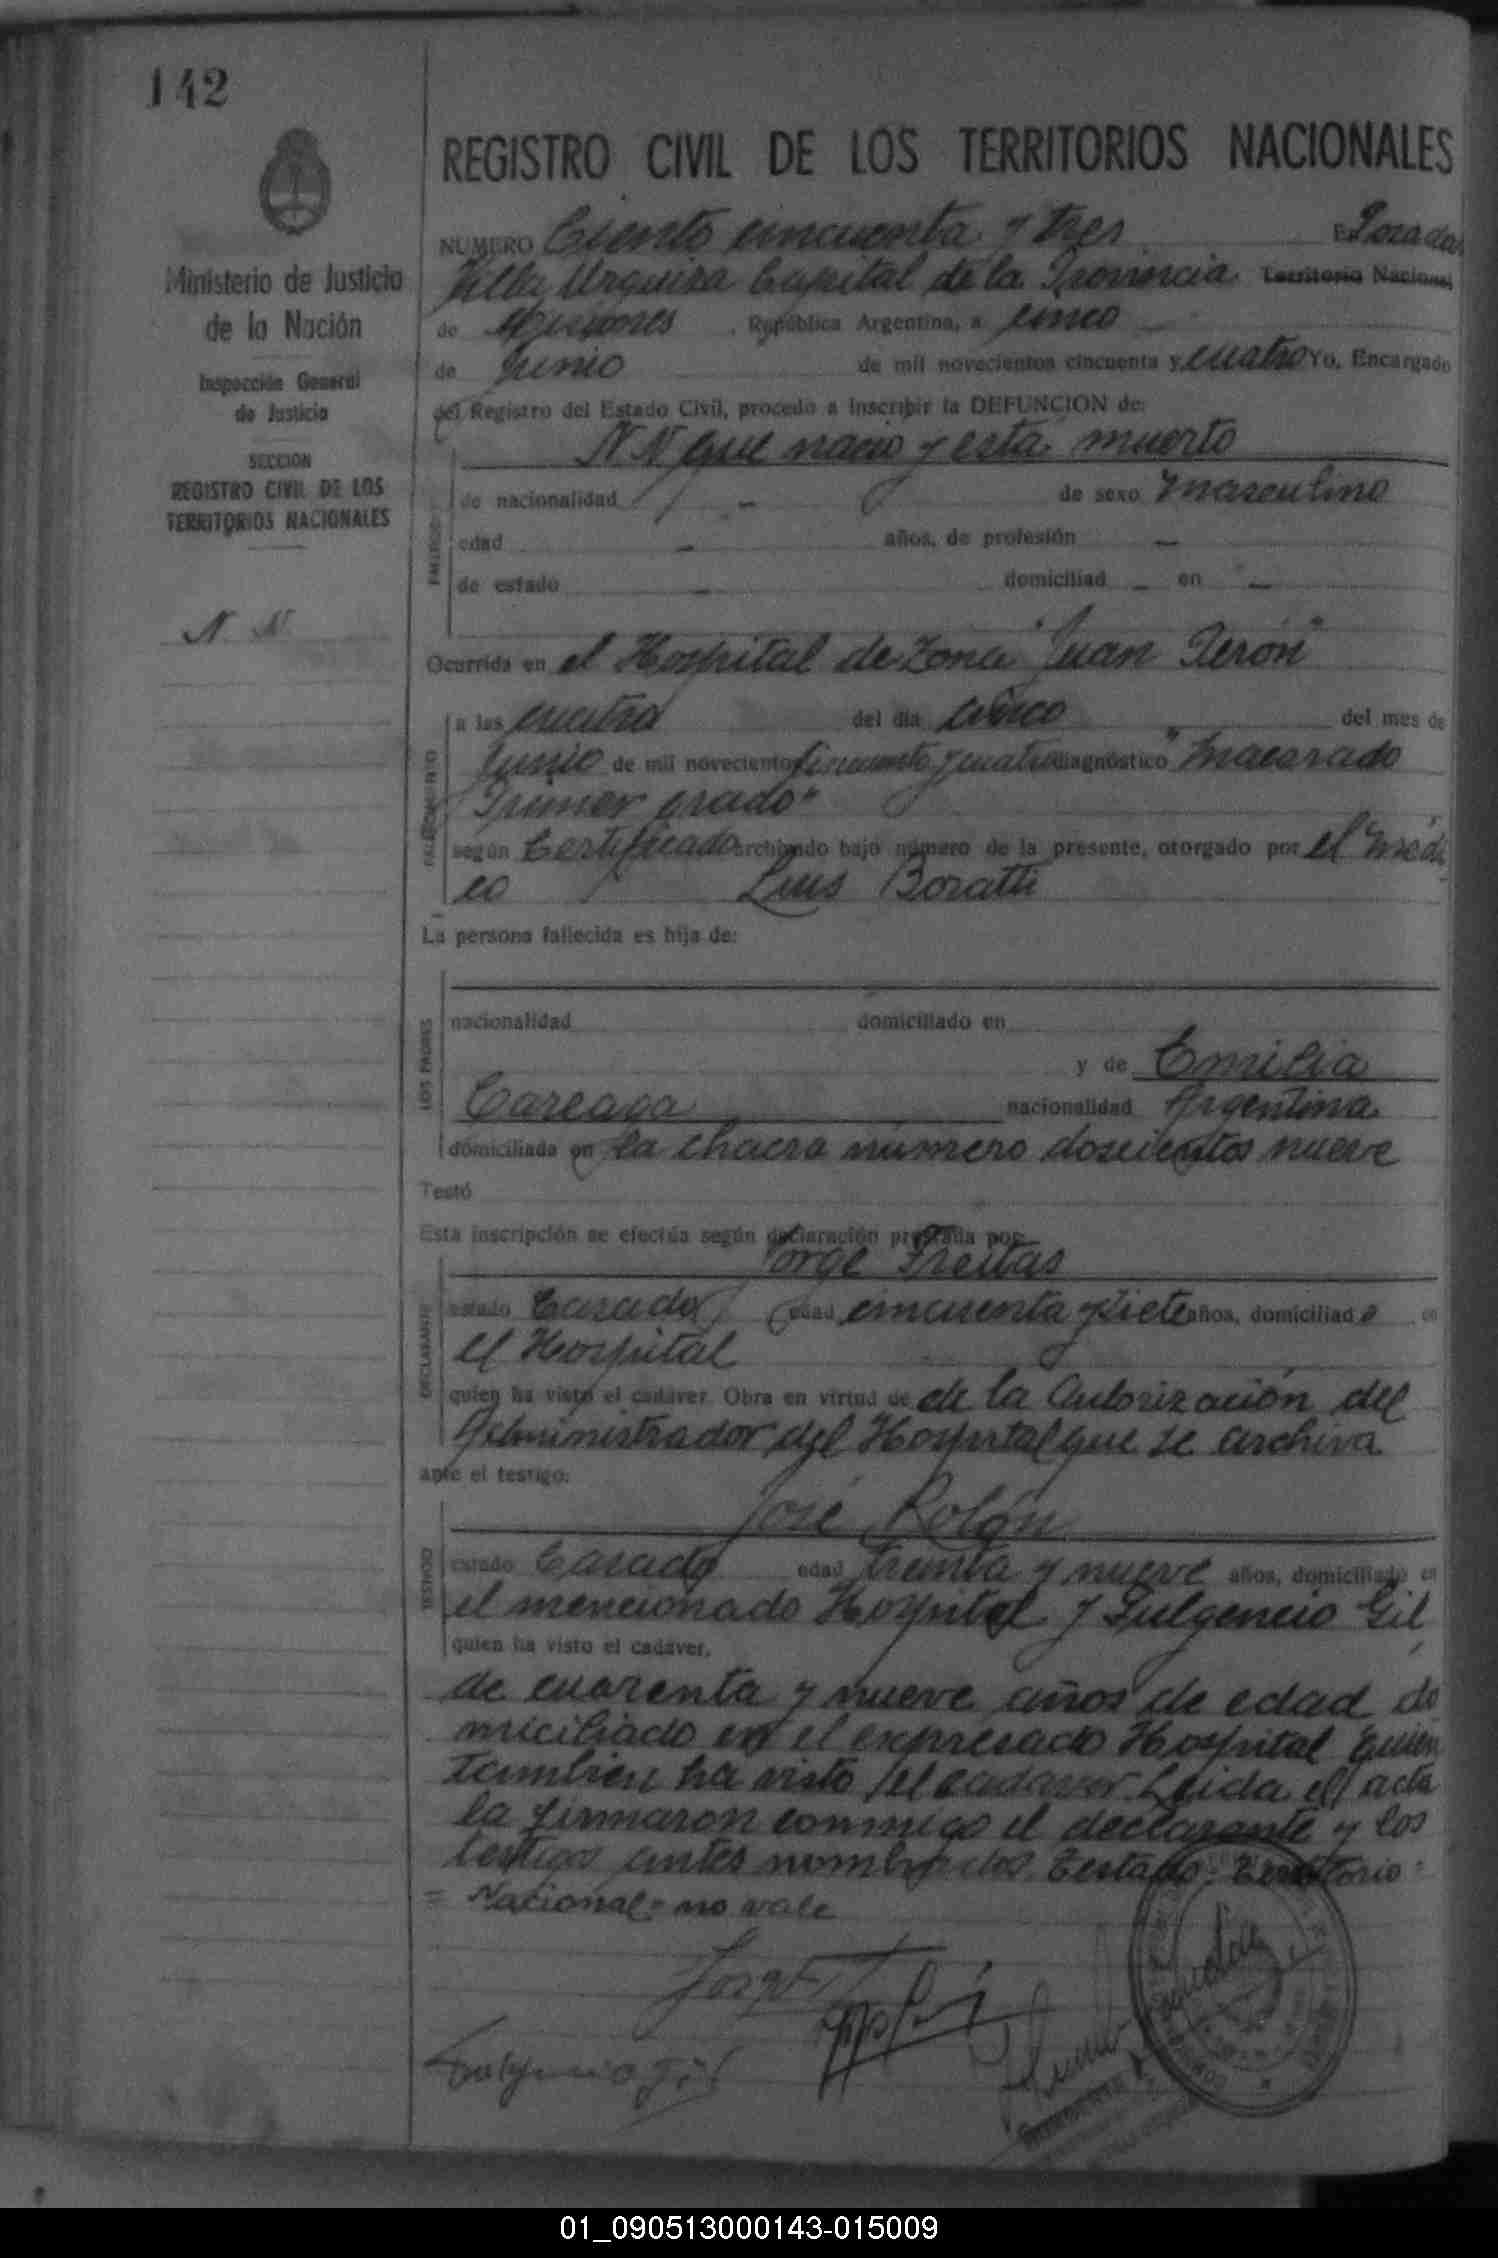 142
REGISTRO CIVIL DE LOS TERRITORIOS NACIONALES
Ministerio de Justicia
de la Nación
Inspección General
de Justicia
SECCION
REGISTRO CIVIL DE LOS
TERRITORIOS NACIONALES
N. N.
NUMERO Ciento cincuenta y tres En Posadas
Villa Urquiza Capital de la Provincia Territorio Nacional
de Misiones, República Argentina, a cinco
de Junio de mil novecientos cincuenta y cuatro Yo, Encargado
del Registro del Estado Civil, procedo a inscribir la DEFUNCION de:
N N que nació y está muerto
de nacionalidad - de sexo masculino
edad - años, de profesión -
de estado - domiciliad - en -
FALLECIDO
Ocurrida en el Hospital de Zona "Juan Perón"
a las cuatro del día cinco del mes de
Junio de mil novecientos cincuenta y cuatro diagnóstico "Macerado
Primer grado"
según Certificado archivado bajo número de la presente, otorgado por el Médi
co Luis Boratti
FALLECIMIENTO
La persona fallecida es hija de:
nacionalidad domiciliado en
y de Emilia
Careaga nacionalidad Argentina
domiciliada en la chacra número doscientos nueve
LOS PADRES
Testó
Esta inscripción se efectúa según declaración prestada por:
Jorge Freitas
estado Casado edad cincuenta y siete años, domiciliado en
el Hospital
quien ha visto el cadáver. Obra en virtud de de la Autorización del
Administrador del Hospital que se archiva
DECLARANTE
ante el testigo:
José Rolón
estado Casado edad treinta y nueve años, domiciliado en
el mencionado Hospital y Fulgencio Gil,
quien ha visto el cadáver.
TESTIGO
de cuarenta y nueve años de edad do
miciliado en el expresado Hospital quien
tambien ha visto el cadaver. Leida el acta
la firmaron conmigo el declarante y los
testigos antes nombrados. Testado: Territorio =
= Nacional = no vale
Jorge F
Fulgencio Gil
01_090513000143-015009